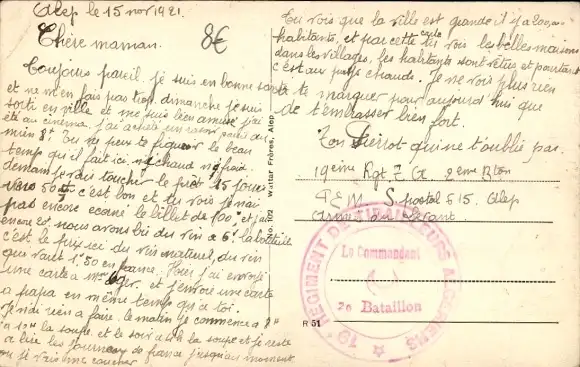 Alep le 15 nov 1921.
Chère maman.
8€
Toujours pareil, je suis en bonne santé
et ne m'en fais pas trop, dimanche je suis
sorti en ville et me suis bien amusé j'ai
été au cinéma, j'ai acheté un rasoir
mien 8f. Tu ne peux te figurer le beau
temps qu'il fait ici, ni chaud ni froid.
demain je vais toucher le prêt 15 jours
50 c'est bon et tu vois je n'ai
pas encore écorné le billet de 100f et j'ai
encore 20f. nous avons bu du vin à 6f la bouteille
c'est le prix ici du vin naturel, du vin
que vaut 1f50 en france. j'ai envoyé
une carte à Mme et j'envoie une carte
à papa en même temps qu'à toi.
Je n'ai rien à faire. le matin je commence à 8h
à 10h la soupe et le soir à la soupe et je reste
à lire les journaux de france jusqu'au moment
où je vais me coucher
Tu vois que la ville est grande il y a 200,000
habitants, et par cette carte tu vois les belles maisons
dans les villages, les habitants sont vêtus et pourtant
c'est au pays chauds. Je ne vois plus rien
à te marquer pour aujourd'hui que
de t'embrasser bien fort.
Ton Pierrot qui ne t'oublie pas.
19ème Rgt T A 2ème Bton
T E M S. postal 615. Alep
Armée du Levant
No. 102 Wattar Frères, Alep
19e REGIMENT DE TIRAILLEURS ALGERIENS
Le Commandant
2e Bataillon
R 51